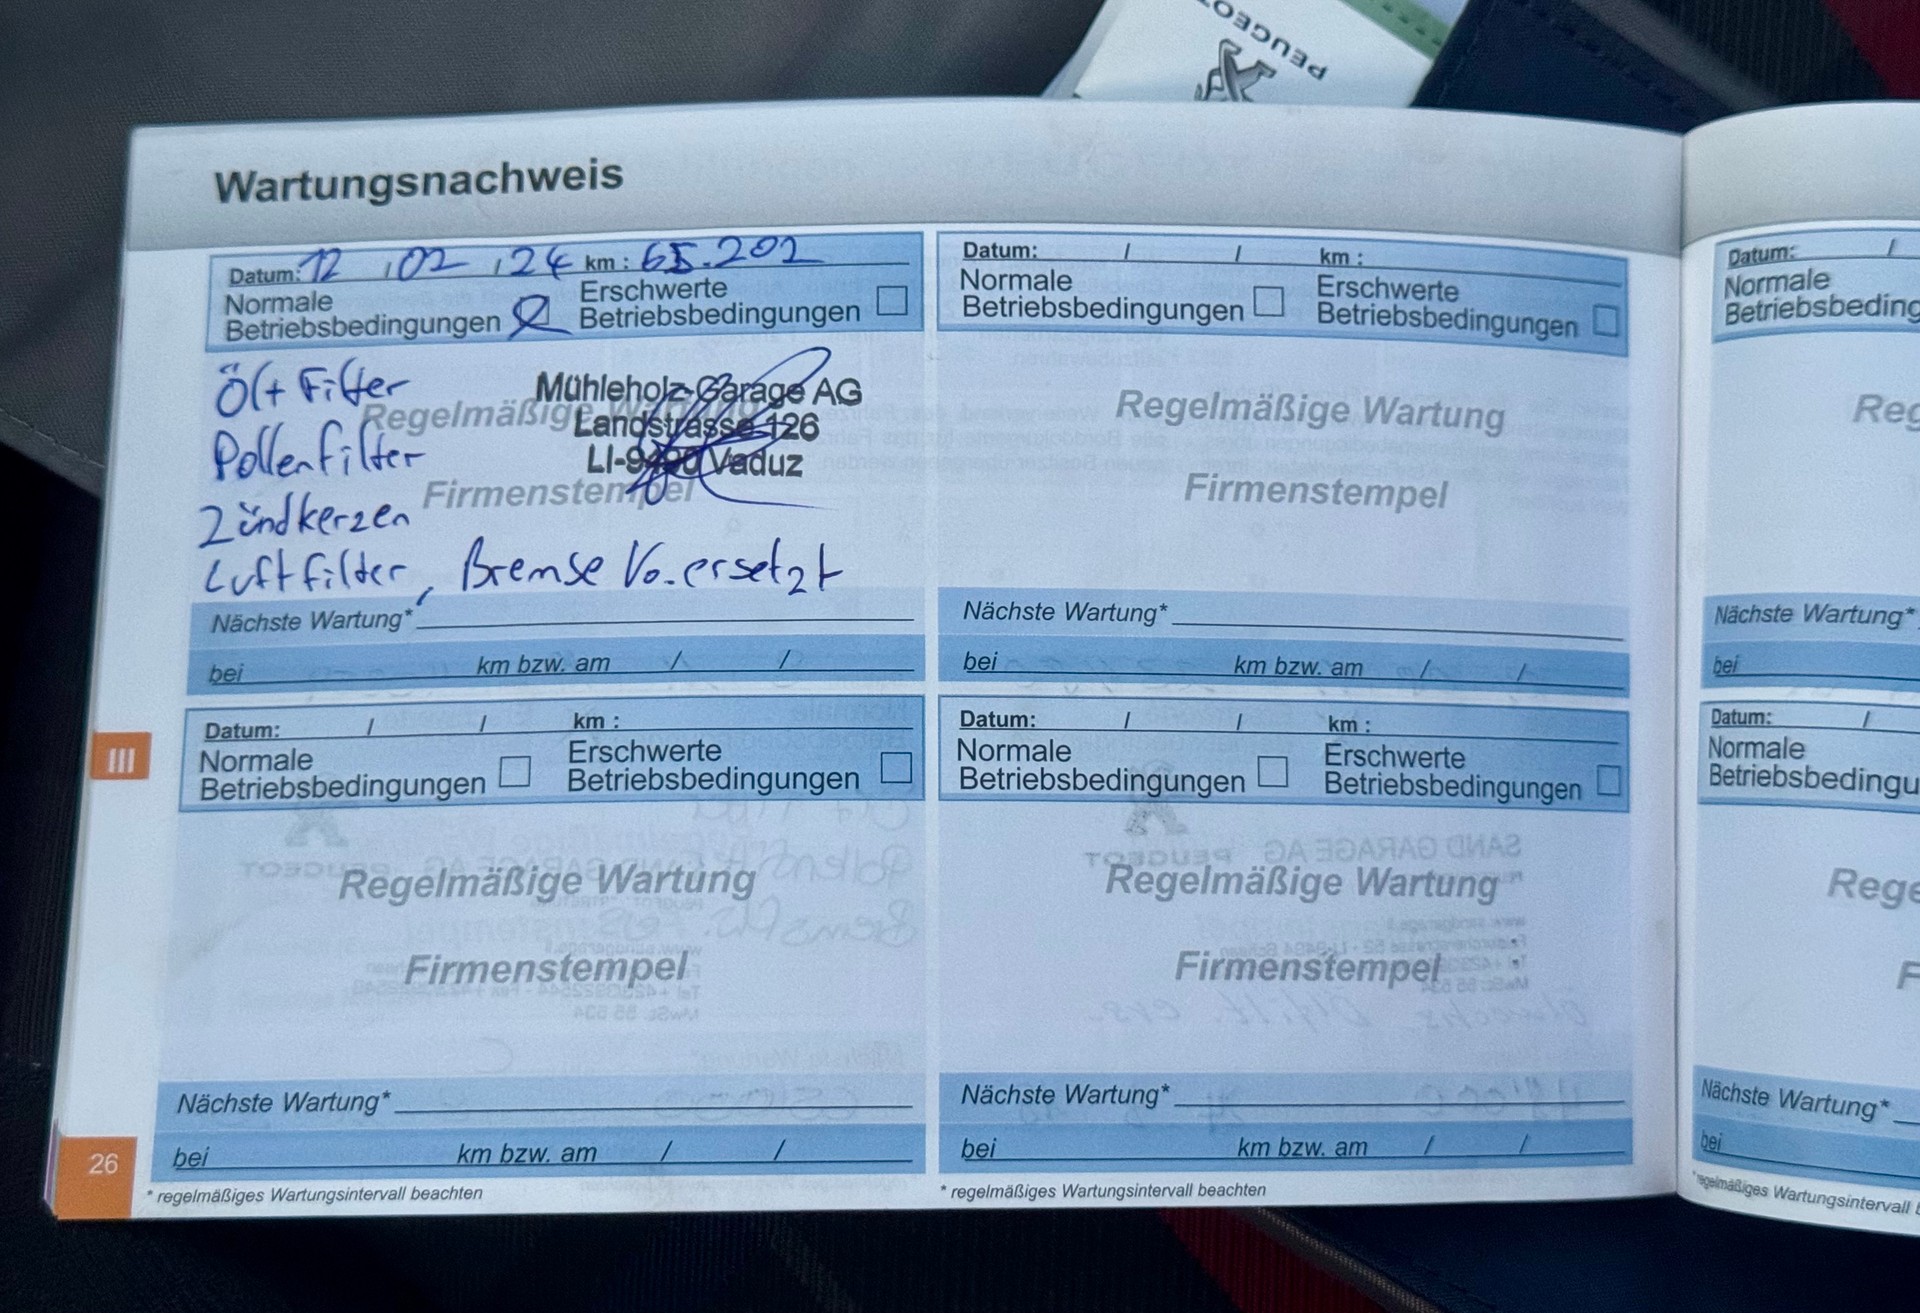 PEUGEOT
Wartungsnachweis
Datum: 12 / 02 / 24 km : 65.202
Normale Betriebsbedingungen
Erschwerte Betriebsbedingungen
Öl + Filter
Pollenfilter
Zündkerzen
Luftfilter, Bremse Vo. ersetzt
Regelmäßige Wartung
Firmenstempel
Mühleholz-Garage AG
Landstrasse 126
LI-9490 Vaduz
Nächste Wartung*
bei km bzw. am / /
Datum: / / km :
Normale Betriebsbedingungen
Erschwerte Betriebsbedingungen
Regelmäßige Wartung
Firmenstempel
Nächste Wartung*
bei km bzw. am / /
Datum: /
Normale
Betriebsbeding
Reg
Nächste Wartung*
bei
III
Datum: / / km :
Normale Betriebsbedingungen
Erschwerte Betriebsbedingungen
Regelmäßige Wartung
Firmenstempel
Nächste Wartung*
bei km bzw. am / /
* regelmäßiges Wartungsintervall beachten
Datum: / / km :
Normale Betriebsbedingungen
Erschwerte Betriebsbedingungen
Regelmäßige Wartung
Firmenstempel
Nächste Wartung*
bei km bzw. am / /
* regelmäßiges Wartungsintervall beachten
Datum: /
Normale
Betriebsbedingu
Rege
F
Nächste Wartung*
bei
*regelmäßiges Wartungsintervall b
26